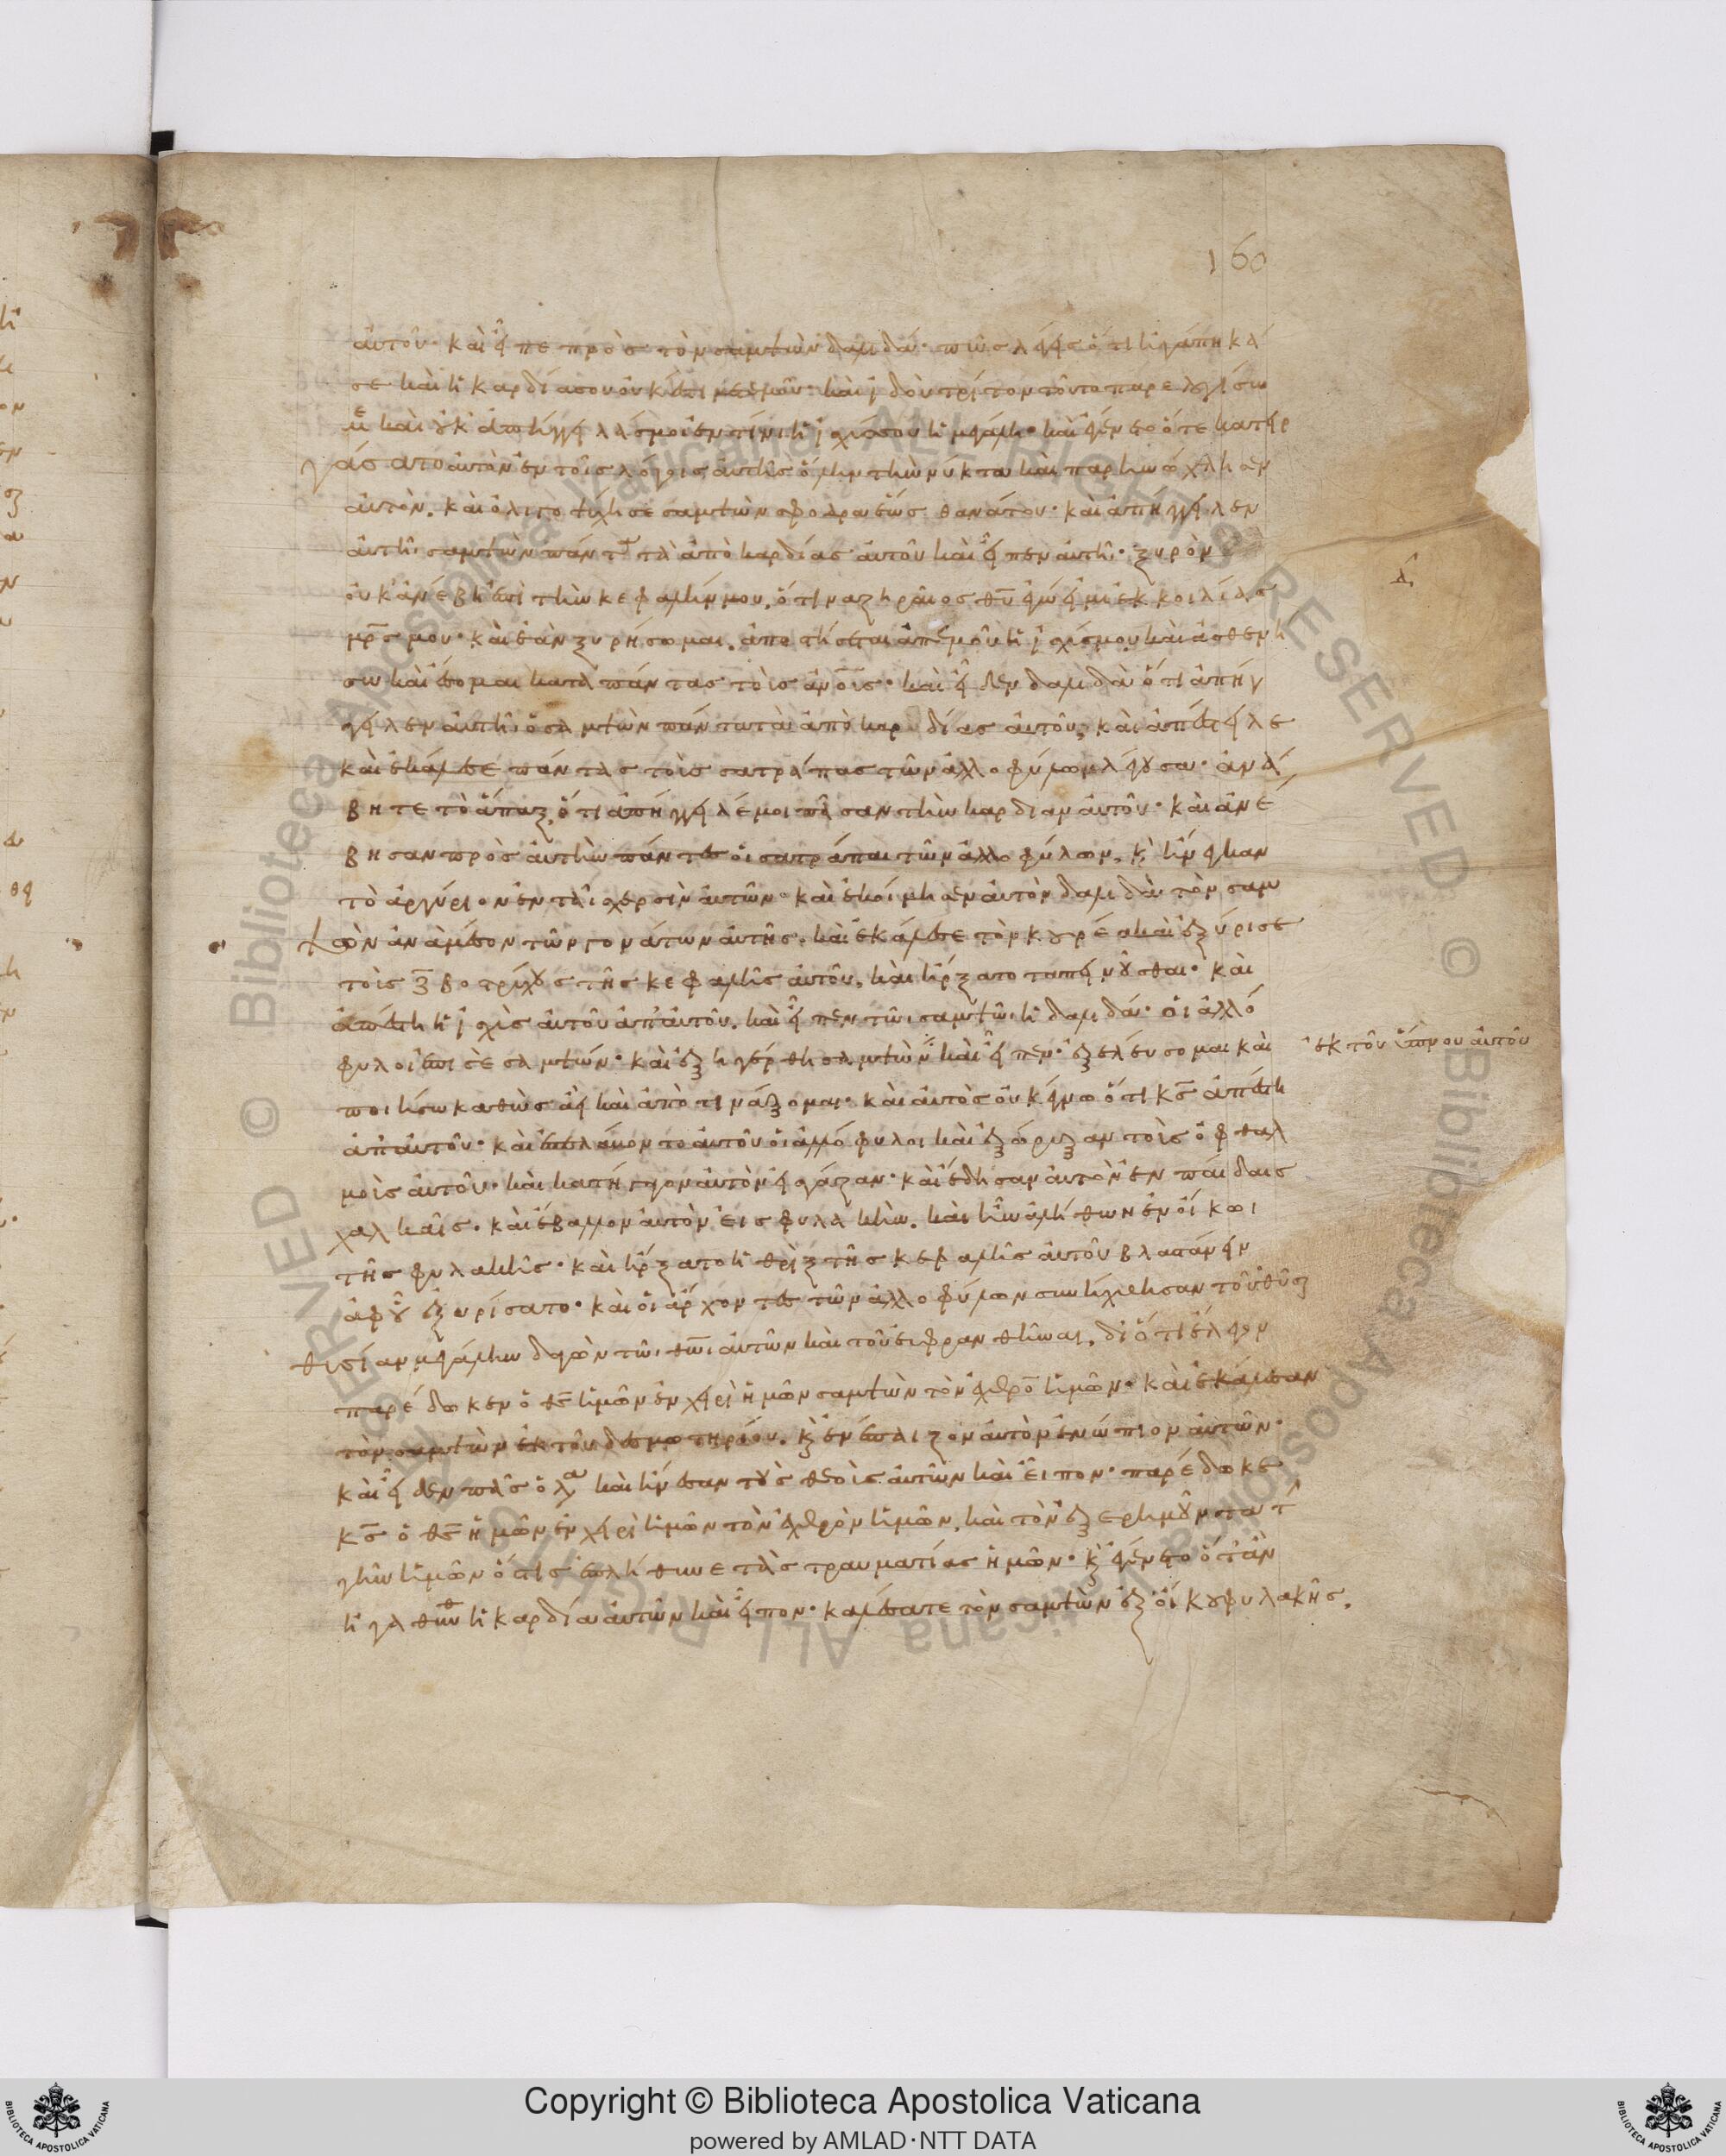 160
αὐτοῦ· καὶ εἶπε πρὸς τὸν σαμψὼν δαλιδά· πῶς λέγεις ὅτι ἠγάπηκά
σε καὶ ἡ καρδία σου οὐκ ἔστι μετ' ἐμοῦ· καὶ ἰδοὺ τρίτον τοῦτο παρελογίσω
με καὶ οὐκ ἀπήγγειλάς μοι ἐν τίνι ἡ ἰσχύς σου ἡ μεγάλη· καὶ ἐγένετο ὅτε κατειρ
γάσατο αὐτὸν ἐν τοῖς λόγοις αὐτῆς ὅλην τὴν νύκτα καὶ παρηνώχλησεν
αὐτὸν. καὶ ὀλιγοψύχησε σαμψὼν σφόδρα ἕως θανάτου· καὶ ἀπήγγειλεν
αὐτῆι σαμψὼν πάντα τὰ ἀπὸ καρδίας αὐτοῦ καὶ εἶπεν αὐτῆι· ξυρὸν
οὐκ ἀνέβη ἐπὶ τὴν κεφαλήν μου, ὅτι ναζηραῖος θυ ἐγώ εἰμι ἐκ κοιλίας
μρς μου· καὶ ἐὰν ξυρήσωμαι. ἀποστήσεται ἀπ' ἐμοῦ ἡ ἰσχύς μου καὶ ἀσθενή
σω καὶ ἔσομαι κατὰ πάντας τοὺς ἀνους· καὶ εἶδεν δαλιδὰ ὅτι ἀπήγ
γειλεν αὐτῆι ὁ σαμψὼν πάντα τὰ ἀπὸ καρδίας αὐτοῦ, καὶ ἀπέστειλε
καὶ ἐκάλεσε πάντας τοὺς σατράπας τῶν ἀλλοφύλων λέγουσα· ἀνά
βητε τὸ ἅπαξ, ὅτι ἀπήγγειλέ μοι πᾶσαν τὴν καρδίαν αὐτοῦ· καὶ ἀνέ
βησαν πρὸς αὐτὴν πάντες οἱ σατράπαι τῶν ἀλλοφύλων. κ ἤνεγκαν
τὸ ἀργύριον ἐν ταῖς χερσὶν αὐτῶν· καὶ ἐκοίμησεν αὐτὸν δαλιδὰ τὸν σαμ
ψὼν ἀνάμεσον τῶν γονάτων αὐτῆς. καὶ ἐκάλεσε τὸν κουρέα καὶ ἐξύρισε
τοὺς ζ βοτρύχους τῆς κεφαλῆς αὐτοῦ. καὶ ἤρξατο ταπεινοῦσθαι· καὶ
ἀπέστη ἡ ἰσχὺς αὐτοῦ ἀπ' αὐτοῦ. καὶ εἶπεν τῶι σαμψὼ ἡ δαλιδά· οἱ ἀλλό
φυλοι ἐπὶ σὲ σαμψών· καὶ ἐξηγέρθη σαμψὼν καὶ εἶπεν· ἐξελεύσομαι καὶ
ἐκ τοῦ ὕπνου αὐτοῦ
ποιήσω καθὼς ἀεὶ καὶ ἀποτινάξομαι· καὶ αὐτὸς οὐκ ἔγνω ὅτι κς ἀπέστη
ἀπ' αὐτοῦ· καὶ ἐπελάβοντο αὐτοῦ οἱ ἀλλόφυλοι καὶ ἐξώρυξαν τοὺς ὀφθαλ
μοὺς αὐτοῦ· καὶ κατήγαγον αὐτὸν εἰς γάζαν· καὶ ἔδησαν αὐτὸν ἐν πέδαις
χαλκαῖς· καὶ ἔβαλλον αὐτὸν εἰς φυλακήν. καὶ ἦν ἀλήθων ἐν οἴκωι
τῆς φυλακῆς· καὶ ἤρξατο ἡ θρὶξ τῆς κεφαλῆς αὐτοῦ βλαστάνειν
ἀφ' οὗ ἐξυρίσατο· καὶ οἱ ἄρχοντες τῶν ἀλλοφύλων συνήχθησαν τοῦ θῦσαι
θυσίαν μεγάλην δαγὼν τῶι θωι αὐτῶν καὶ τοῦ εὐφρανθῆναι. διότι ἔλεγον
παρέδωκεν ὁ θς ἡμῶν ἐν χειρὶ ἡμῶν σαμψὼν τὸν ἐχθρὸ ἡμῶν· καὶ ἐκάλεσαν
τὸν σαμψὼν ἐκ τοῦ δεσμωτηρίου. κ ἐνέπαιζον αὐτὸν ἐνώπιον αὐτῶν·
καὶ εἶδεν πᾶς ὁ λα καὶ ἤνεσαν τοὺς θεοὺς αὐτῶν καὶ εἶπον· παρέδωκε
κς ὁ θς ἡμῶν ἐν χειρὶ ἡμῶν τὸν ἐχθρὸν ἡμῶν, καὶ τὸν ἐξερημοῦντα τ
γῆν ἡμῶν ὅστις ἐπλήθυνε τὰς τραυματίας ἡμῶν· κ ἐγένετο ὅτ' ἂν
ἠγαθύνθη ἡ καρδία αὐτῶν καὶ εἶπον· καλέσατε τὸν σαμψὼν ἐξ οἴκου φυλακῆς.
Copyright © Biblioteca Apostolica Vaticana
powered by AMLAD·NTT DATA